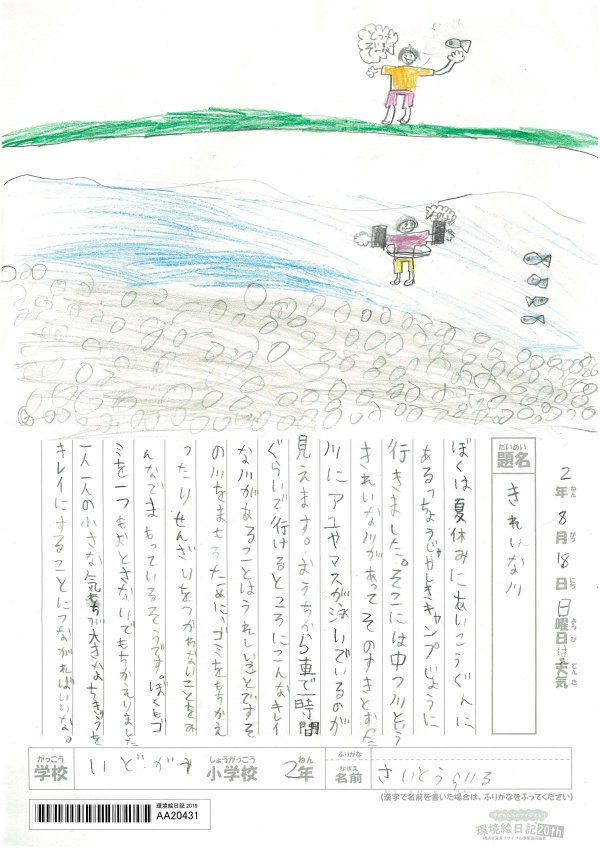 とったぞー
2年8月18日日曜日は天気
ねん
がつ
にち
ようび
てんき
だいめい
題名
きれいな川
ぼくは夏休みにあいこうぐんに、
あるっちょうじゃやしきキャンプじょうに
行きました。そこには中つ川という
きれいな川があってそのすきとおった
川にアユやマスが泳いでいるのが
見えます。おうちから車で一時間
ぐらいで行けるところにこんなキレイ
な川があることはうれしいことですそ
の川をまもるために、ゴミをもちかえ
ったりせんざいをつかわないことをみ
んなでまもっているそうです。ぼくもゴ
ミを一つもおとさないでもちかえりました
一人一人の小さな気もちが大きなちきゅうを
キレイにすることにつながればいいな。
がっこう
学校
いどがや
しょうがっこう
小学校
2年
ねん
ふりがな
なまえ
名前
さいとう
(漢字で名前を書いた場合は、ふりがなをふってください)
環境絵日記2019
AA20431
環境絵日記20th